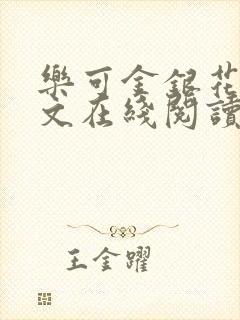 樂可金銀花
文在綫閱讀
王金躍